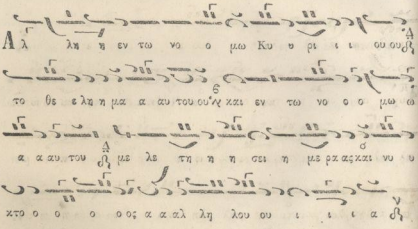 Αλ λη η εν τω νο ο μω Κυ υ ρι ι ι ου ου
το θε ε λη η μα α αυ του ου και εν τω νο ο ο μω ω
α α αυ του με λε τη η η σει η με ρα ας και νυ υ
κτο ο ο ο ος α α αλ λη λου ου ι ι ι α